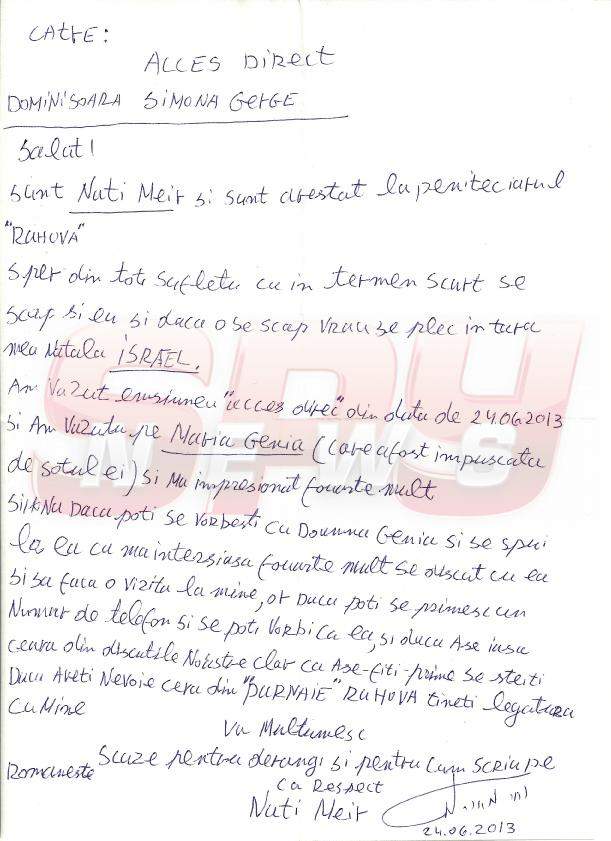 CATRE:
ACCES DIRECT
DOMINISOARA SIMONA GERGE
Salut!
sunt Nati Meir si sunt arestat la peniteciarul
"RAHOVA"
sper din tot sufletu ca in termen scurt se
scap si eu si daca o se scap vrau se plec in tara
mea Natala iSRAEL.
Am Vazut emsiunea "acces direc" din data de 24.06.2013
si Am Vazuta pe Maria Genia (care a fost impuscata
de sotul ei) si Ma impresionat fouarte mult
Daca poti se vorbesti cu Doamna Genia si se spui
la ea ca ma intersiasa fouarte mult se discut cu ea
si sa faca o vizita la mine, or daca poti se primesc un
Numar de telefon si se poti vorbi ca ea, si daca Ase iasa
ceara din discutile Noiastre clar ca Ase-fiti-prime se steiti
Daca Aveti Nevoie cera din "PURNAIE" RAHOVA tineti legatura
Cu Mine
Va Multumesc
Scuze pentru derangi si pentru cum scriu pe
Romaneste
Ca Respect
Nati Meir
24.06.2013
SPY
NEWS